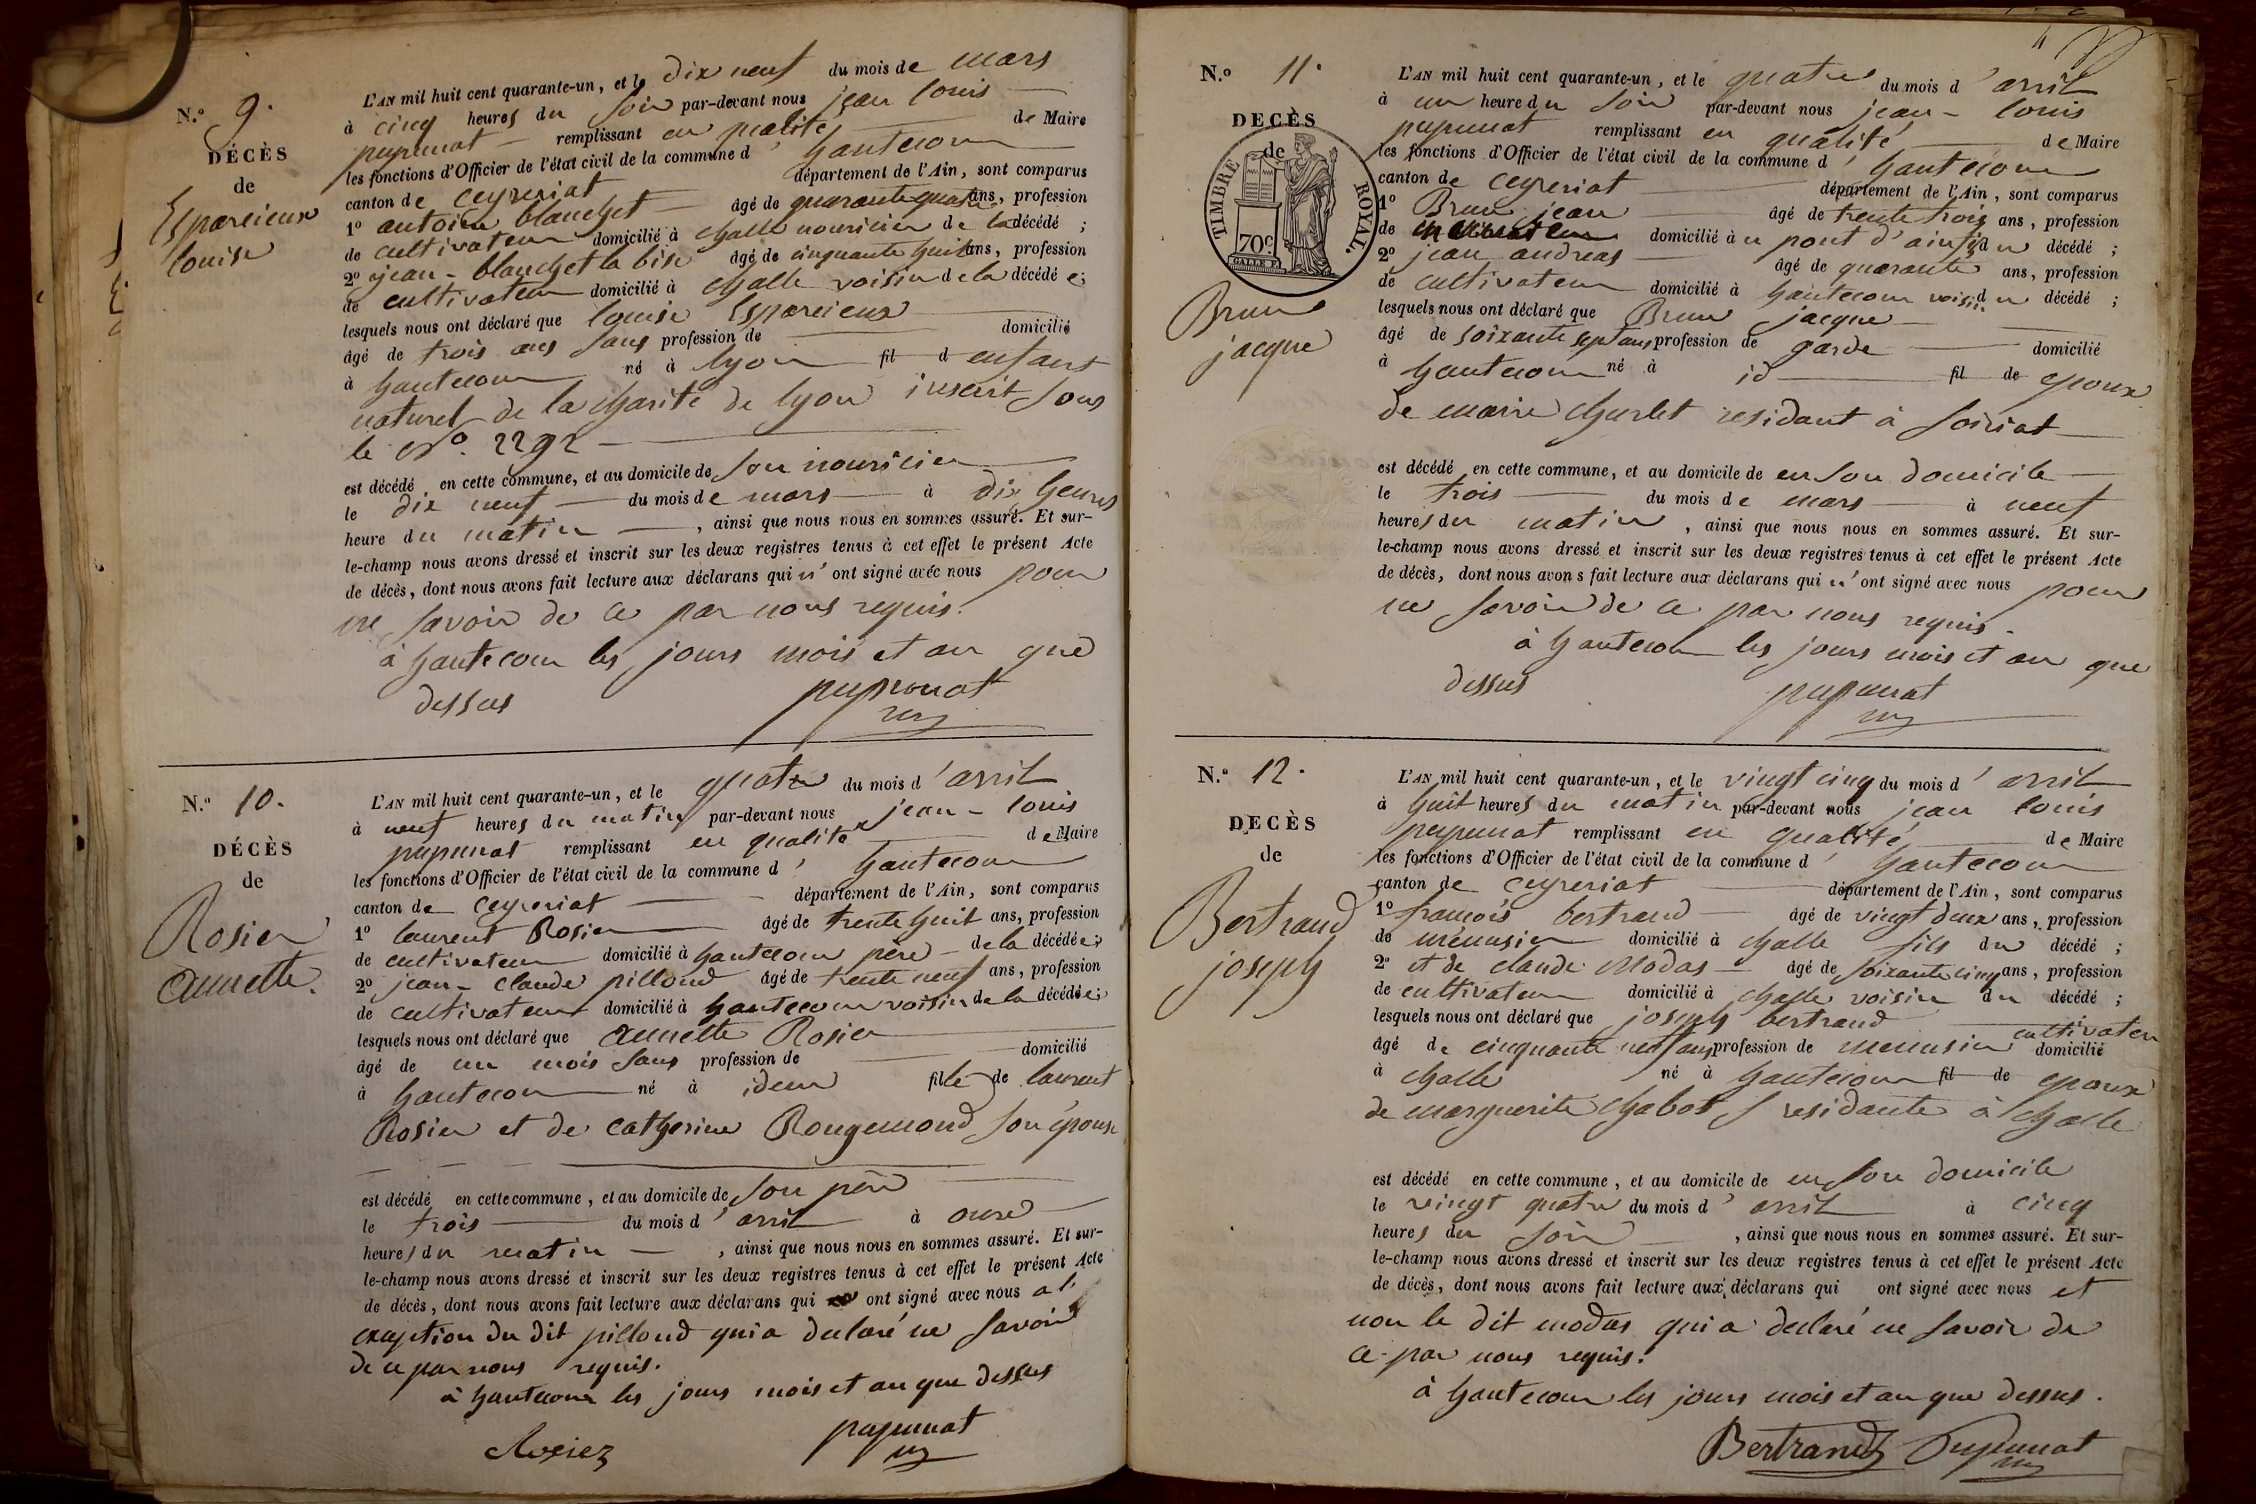 N.º 9.
DÉCÈS
de
Esparcieux
louise
L'AN mil huit cent quarante-un, et le dix neuf du mois de mars
à cinq heures du soir par-devant nous jean louis
pupunat remplissant en qualité de Maire
les fonctions d'Officier de l'état civil de la commune d' hautecour
canton de ceyzeriat département de l'Ain, sont comparus
1º antoine blanchet âgé de quarante quatre ans, profession
de cultivateur domicilié à challe nouricier de la décédé ;
2º jean-blanchet la bise âgé de cinquante huit ans, profession
de cultivateur domicilié à challe voisin de la décédé e;
lesquels nous ont déclaré que louise Esparcieux
âgé de trois ans sans profession de domicilié
à hautecour né à lyon fil d enfant
naturel de la charité de lyon inscrit sous
le Nº. 2292
est décédé en cette commune, et au domicile de son nouricier
le dix neuf du mois de mars à dix heures
heure du matin , ainsi que nous nous en sommes assuré. Et sur-
le-champ nous avons dressé et inscrit sur les deux registres tenus à cet effet le présent Acte
de décès, dont nous avons fait lecture aux déclarans qui n' ont signé avec nous pour
ne savoir de ce par nous requis.
à hautecour les jours mois et an que
dessus pupunat
N.º 10.
DÉCÈS
de
Rosier
annette.
L'AN mil huit cent quarante-un, et le quatre du mois d'avril
à neuf heures du matin par-devant nous jean-louis
pupunat remplissant en qualité de Maire
les fonctions d'Officier de l'état civil de la commune d' hautecour
canton de ceyzeriat département de l'Ain, sont comparus
1º laurent Rosier âgé de trente huit ans, profession
de cultivateur domicilié à hautecour père de la décédée;
2º jean-claude pilloud âgé de trente neuf ans, profession
de cultivateur domicilié à hautecour voisin de la décédée;
lesquels nous ont déclaré que annette Rosier
âgé de un mois sans profession de domicilié
à hautecour né à idem fille de laurent
Rosier et de catherine Rougemond son épouse
est décédé en cette commune, et au domicile de son père
le trois du mois d'avril à onze
heures du matin , ainsi que nous nous en sommes assuré. Et sur-
le-champ nous avons dressé et inscrit sur les deux registres tenus à cet effet le présent Acte
de décès, dont nous avons fait lecture aux déclarans qui ont signé avec nous a l'
exception du dit pilloud qui a declaré ne savoir
de ce par nous requis.
à hautecour les jours mois et an que dessus
pupunat
N.º 11.
DECÈS
de
TIMBRE ROYAL
70 C.
Brun
jacque
L'AN mil huit cent quarante-un, et le quatre du mois d'avril
à un heure du soir par-devant nous jean-louis
pupunat remplissant en qualité de Maire
les fonctions d'Officier de l'état civil de la commune d' hautecour
canton de ceyzeriat département de l'Ain, sont comparus
1º Brun jean âgé de trente trois ans, profession
de domicilié à u pont d'ain du décédé ;
2º jean andreas âgé de quarante ans, profession
de cultivateur domicilié à hautecour voisin du décédé ;
lesquels nous ont déclaré que Brun jacque
âgé de soixante sept ans profession de garde domicilié
à hautecour né à id fil de epoux
de marie churlet residant à soiriat
est décédé en cette commune, et au domicile de en son domicile
le trois du mois de mars à neuf
heures du matin , ainsi que nous nous en sommes assuré. Et sur-
le-champ nous avons dressé et inscrit sur les deux registres tenus à cet effet le présent Acte
de décès, dont nous avons fait lecture aux déclarans qui n' ont signé avec nous pour
ne savoir de ce par nous requis.
à hautecour les jours mois et an que
dessus pupunat
N.º 12.
DECÈS
de
Bertrand
joseph
L'AN mil huit cent quarante-un, et le vingt cinq du mois d'avril
à huit heures du matin par-devant nous jean louis
pupunat remplissant en qualité de Maire
les fonctions d'Officier de l'état civil de la commune d' hautecour
canton de ceyzeriat département de l'Ain, sont comparus
1º francois bertrand âgé de vingt deux ans, profession
de menusier domicilié à challe fils du décédé ;
2º et de claude Modas âgé de soixante cinq ans, profession
de cultivateur domicilié à challe voisin du décédé ;
lesquels nous ont déclaré que joseph bertrand
âgé de cinquante neuf ans profession de menusier cultivateur domicilié
à challe né à hautecour fil de epoux
de marguerite chabot residante à challe
est décédé en cette commune, et au domicile de en son domicile
le vingt quatre du mois d'avril à cinq
heures du soir , ainsi que nous nous en sommes assuré. Et sur-
le-champ nous avons dressé et inscrit sur les deux registres tenus à cet effet le présent Acte
de décès, dont nous avons fait lecture aux déclarans qui ont signé avec nous et
non le dit modas qui a declaré ne savoir de
ce par nous requis.
à hautecour les jours mois et an que dessus.
Bertrand pupunat